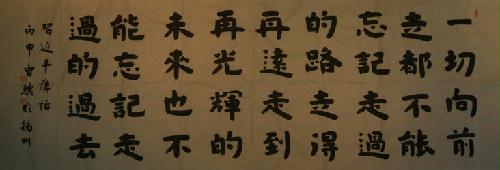 一切向前
走都不能
忘記走過
的路走得
再遠走到
再光輝的
未來也不
能忘記走
過的過去
習近平講話
丙申 揚州